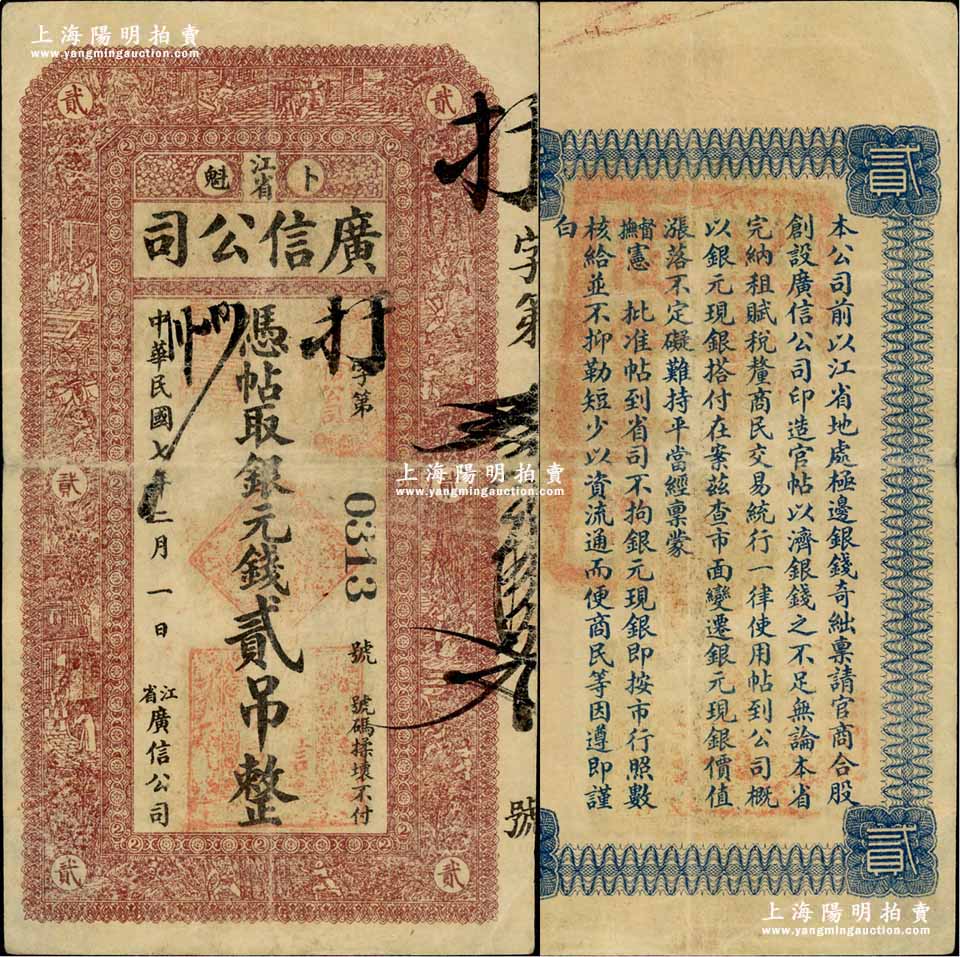 上海陽明拍賣
www.yangmingauction.com
貳
貳
卜
江省
魁
廣信公司
打
字第
0313
號
號碼揉壞不付
憑帖取銀元錢貳吊整
中華民國七年二月一日
江省廣信公司
貳
貳
貳
打
字第
號
貳
本公司前以江省地處極邊銀錢奇絀稟請官商合股
創設廣信公司印造官帖以濟銀錢之不足無論本省
完納租賦稅釐商民交易統行一律使用帖到公司概
以銀元現銀搭付在案茲查市面變遷銀元現銀價值
漲落不定礙難持平當經稟蒙
督撫憲 批准帖到省司不拘銀元現銀即按市行照數
核給並不抑勒短少以資流通而便商民等因遵即謹
白
貳
上海陽明拍賣
www.yangmingauction.com
上海陽明拍賣
www.yangmingauction.com